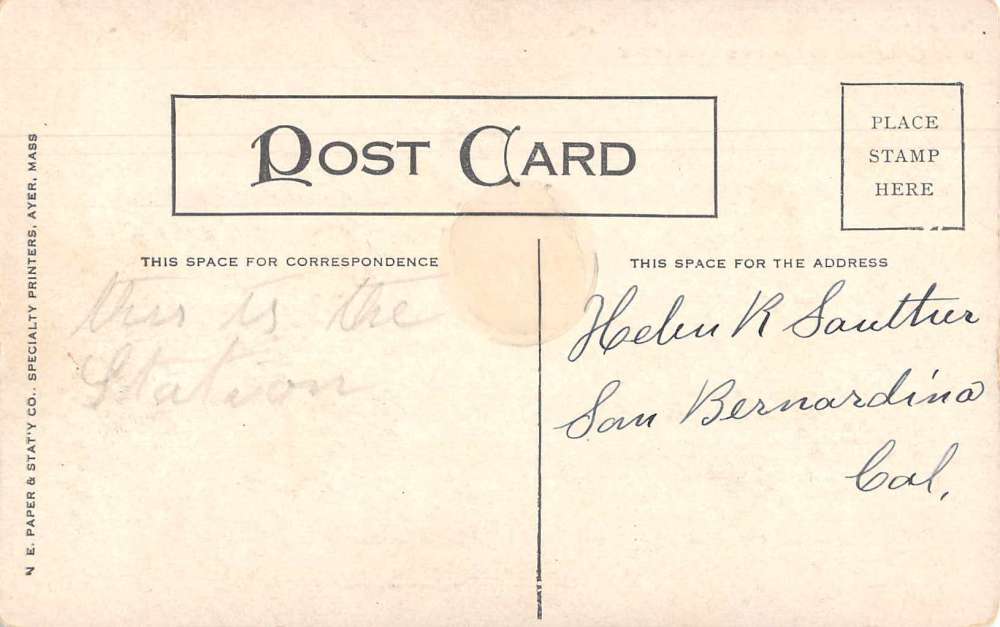 POST CARD
PLACE
STAMP
HERE
THIS SPACE FOR CORRESPONDENCE
this is the
Station
THIS SPACE FOR THE ADDRESS
Helen R Sautther
San Bernardino
Cal.
N E. PAPER & STAT'Y CO., SPECIALTY PRINTERS, AYER, MASS